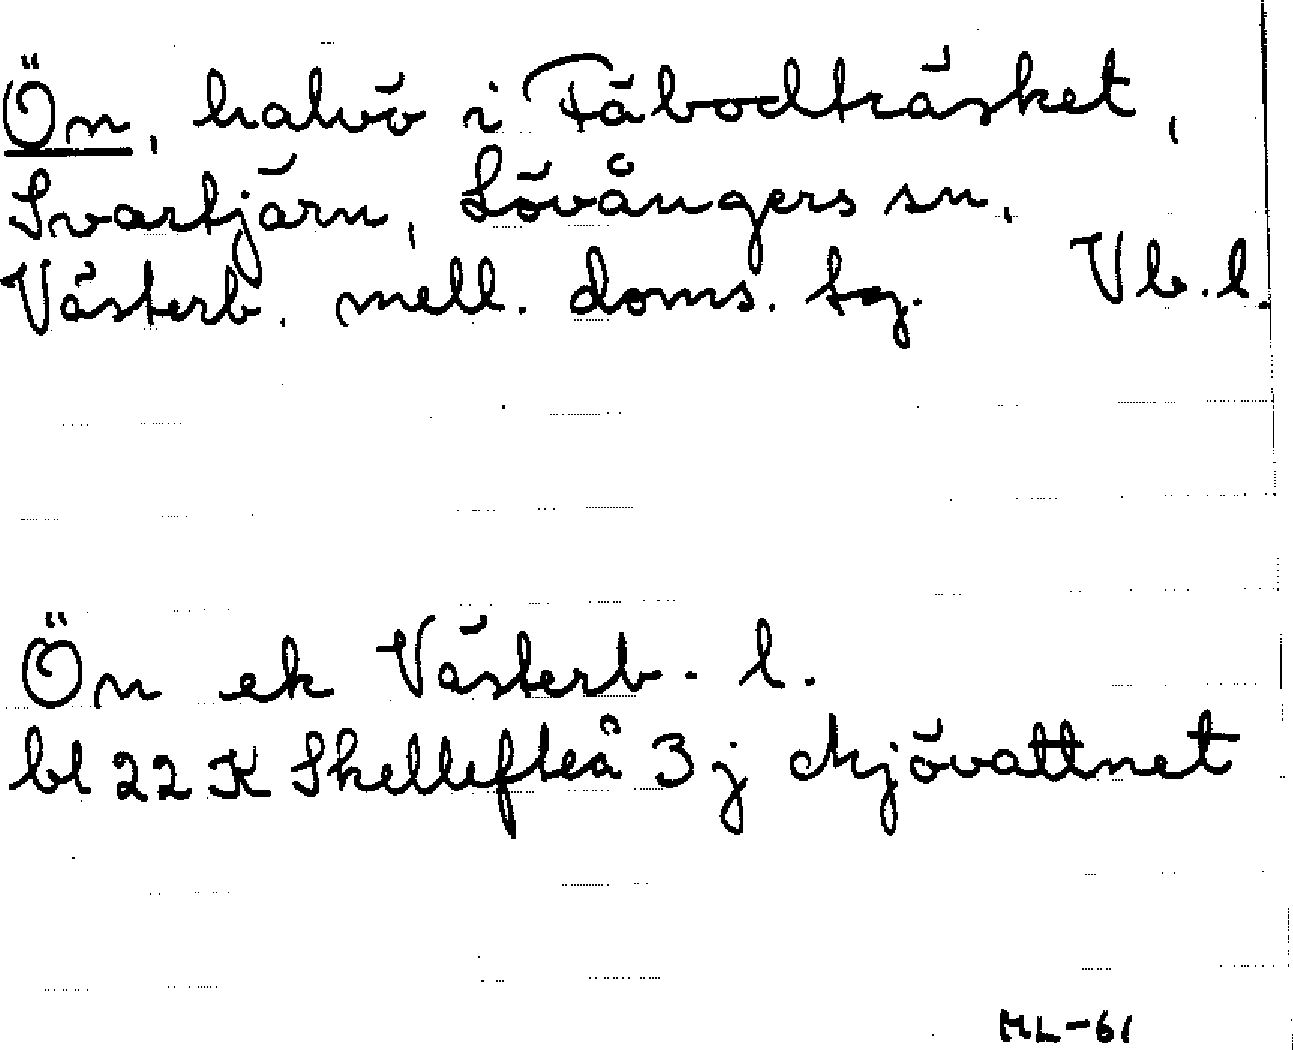 Ön, halvö i Fäbodträsket,
Svartjärn, Lövångers sn,
Västerb. mell. doms. tg. Vb.l.
Ön ek Västerb. l.
bl 22 K Skellefteå 3 j Mjövattnet
ML-61